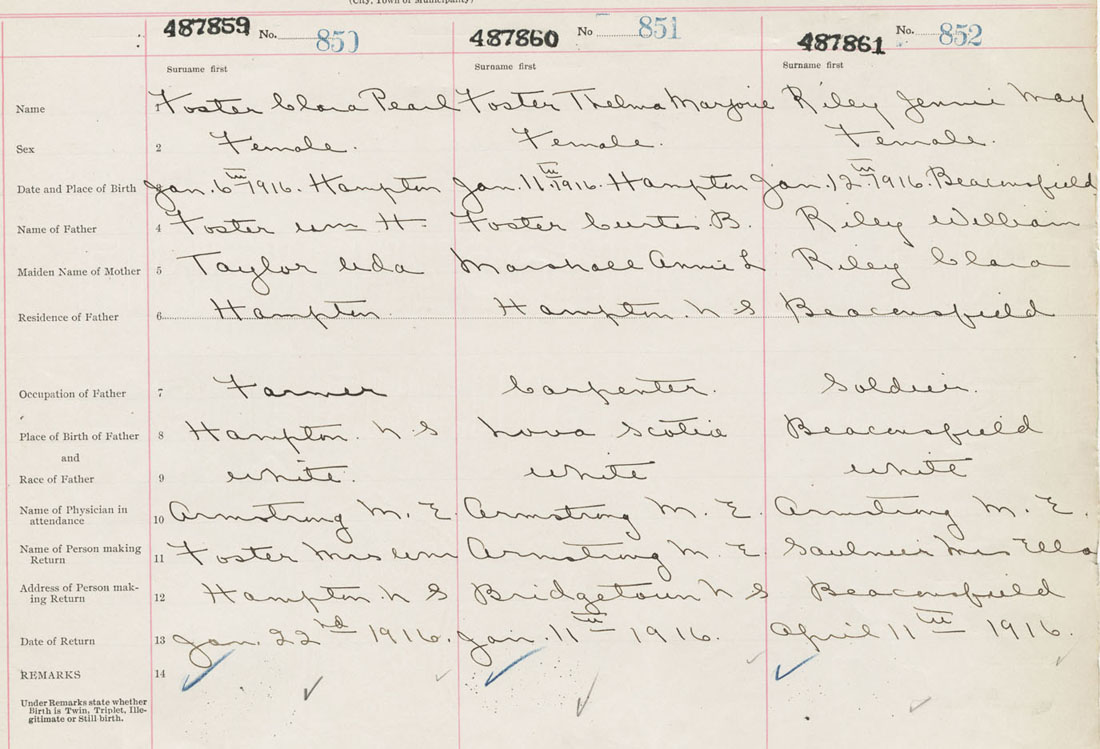 (City, Town or Municipality)
487859 No. 850 487860 No 851 487861 No. 852
Surname first Surname first Surname first
Name 1 Foster Clara Pearl Foster Thelma Marjorie Riley Jennie May
Sex 2 Female. Female. Female.
Date and Place of Birth 3 Jan. 6th 1916. Hampton Jan. 11th 1916. Hampton Jan. 12th 1916. Beaconsfield
Name of Father 4 Foster Wm H. Foster Curtis. B. Riley William
Maiden Name of Mother 5 Taylor Uda Marshall Annie L Riley Clara
Residence of Father 6 Hampton. Hampton. N S Beaconsfield
Occupation of Father 7 Farmer Carpenter. Soldier.
Place of Birth of Father 8 Hampton. N S Nova Scotia Beaconsfield
and
Race of Father 9 White. White White
Name of Physician in
attendance 10 Armstrong M. E. Armstrong M. E. Armstrong M. E.
Name of Person making
Return 11 Foster Mrs Wm Armstrong M. E. Saulnier Mrs Ella
Address of Person mak-
ing Return 12 Hampton. N S Bridgetown N S Beaconsfield
Date of Return 13 Jan. 22nd 1916. Jan. 11th 1916. April 11th 1916.
REMARKS 14
Under Remarks state whether
Birth is Twin, Triplet, Ille-
gitimate or Still birth.